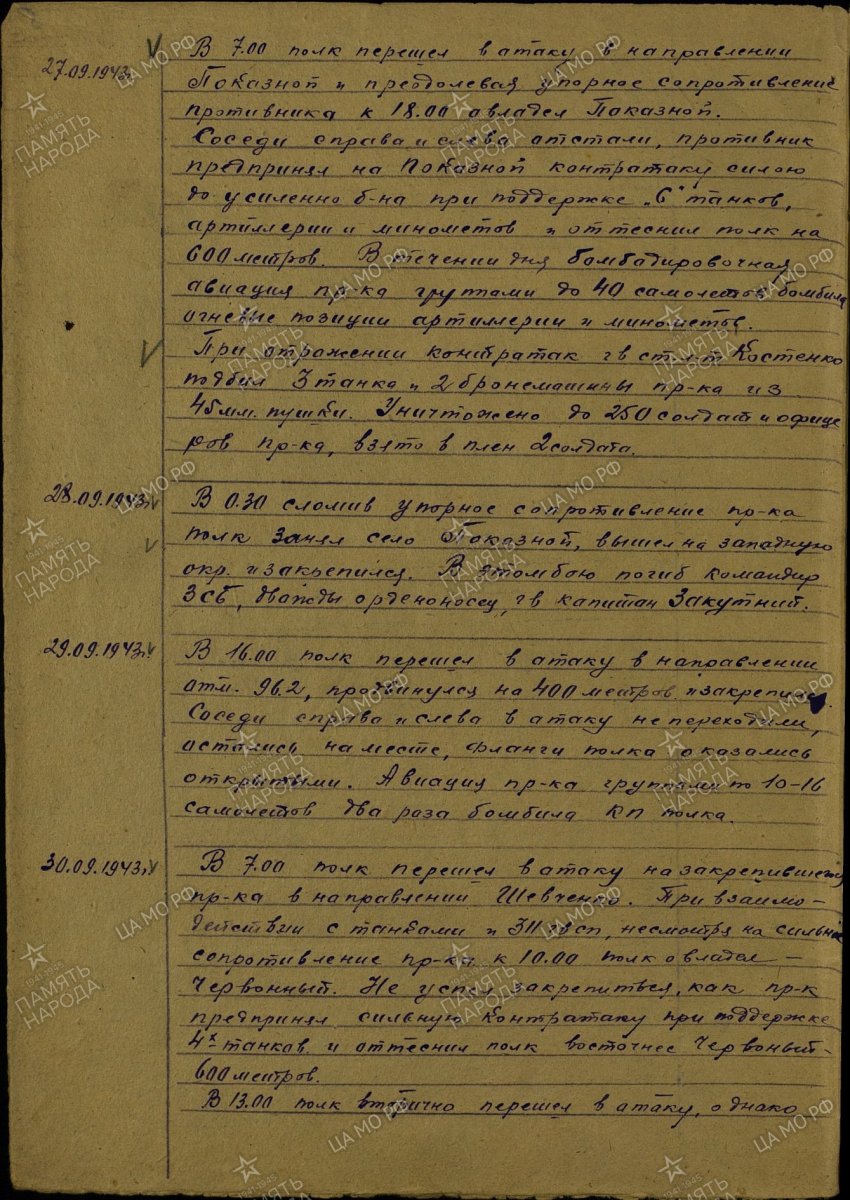 27.09.1943г.
В 7.00 полк перешел в атаку в направлении
Показной и преодолевая упорное сопротивление
противника к 18.00 овладел Показной.
Соседи справа и слева отстали, противник
предпринял на Показной контратаку силою
до усиленно б-на при поддержке "6" танков,
артиллерии и минометов и оттеснил полк на
600 метров. В течении дня бомбадировочная
авиация пр-ка групами до 40 самолетов бомбила
огневые позиции артиллерии и минометов.
При отражении контратак гв ст. л-т Костенко
подбил 3 танка и 2 бронемашины пр-ка из
45 мм. пушки. Уничтожено до 250 солдат и офице
ров пр-ка, взято в плен 2 солдата.
28.09.1943г.
В 0.30 сломив упорное сопротивление пр-ка
полк занял село Показной, вышел на западную
окр. и закрепился. В этом бою погиб командир
3 СБ, дважды орденоносец, гв капитан Закутний.
29.09.1943г.
В 16.00 полк перешел в атаку в направлении
отм. 96.2, продвинулся на 400 метров и
Соседи справа и слева в атаку не переходили,
остались на месте, фланги полка оказались
открытыми. Авиация пр-ка группами по 10-16
самолетов два раза бомбила КП полка.
30.09.1943г.
В 7.00 полк перешел в атаку на закрепившегося
пр-ка в направлении Шевченко. При взаимо-
действии с танками и 311 гвсп, несмотря на сильное
сопротивление пр-ка к 10.00 полк овладел -
Червонный. Не успел закрепиться, как пр-к
предпринял сильную контратаку при поддержке
4х танков и оттеснил полк восточнее Червоный -
600 метров.
В 13.00 полк вторично перешел в атаку, однако
ЦА МО РФ
ПАМЯТЬ
НАРОДА
1941-1945